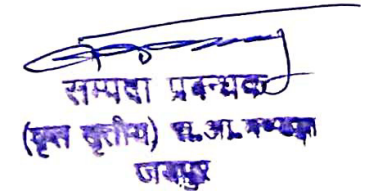 सम्पदा प्रबन्धक
(वृत्त तृतीय) रा.आ. मण्डल
जयपुर